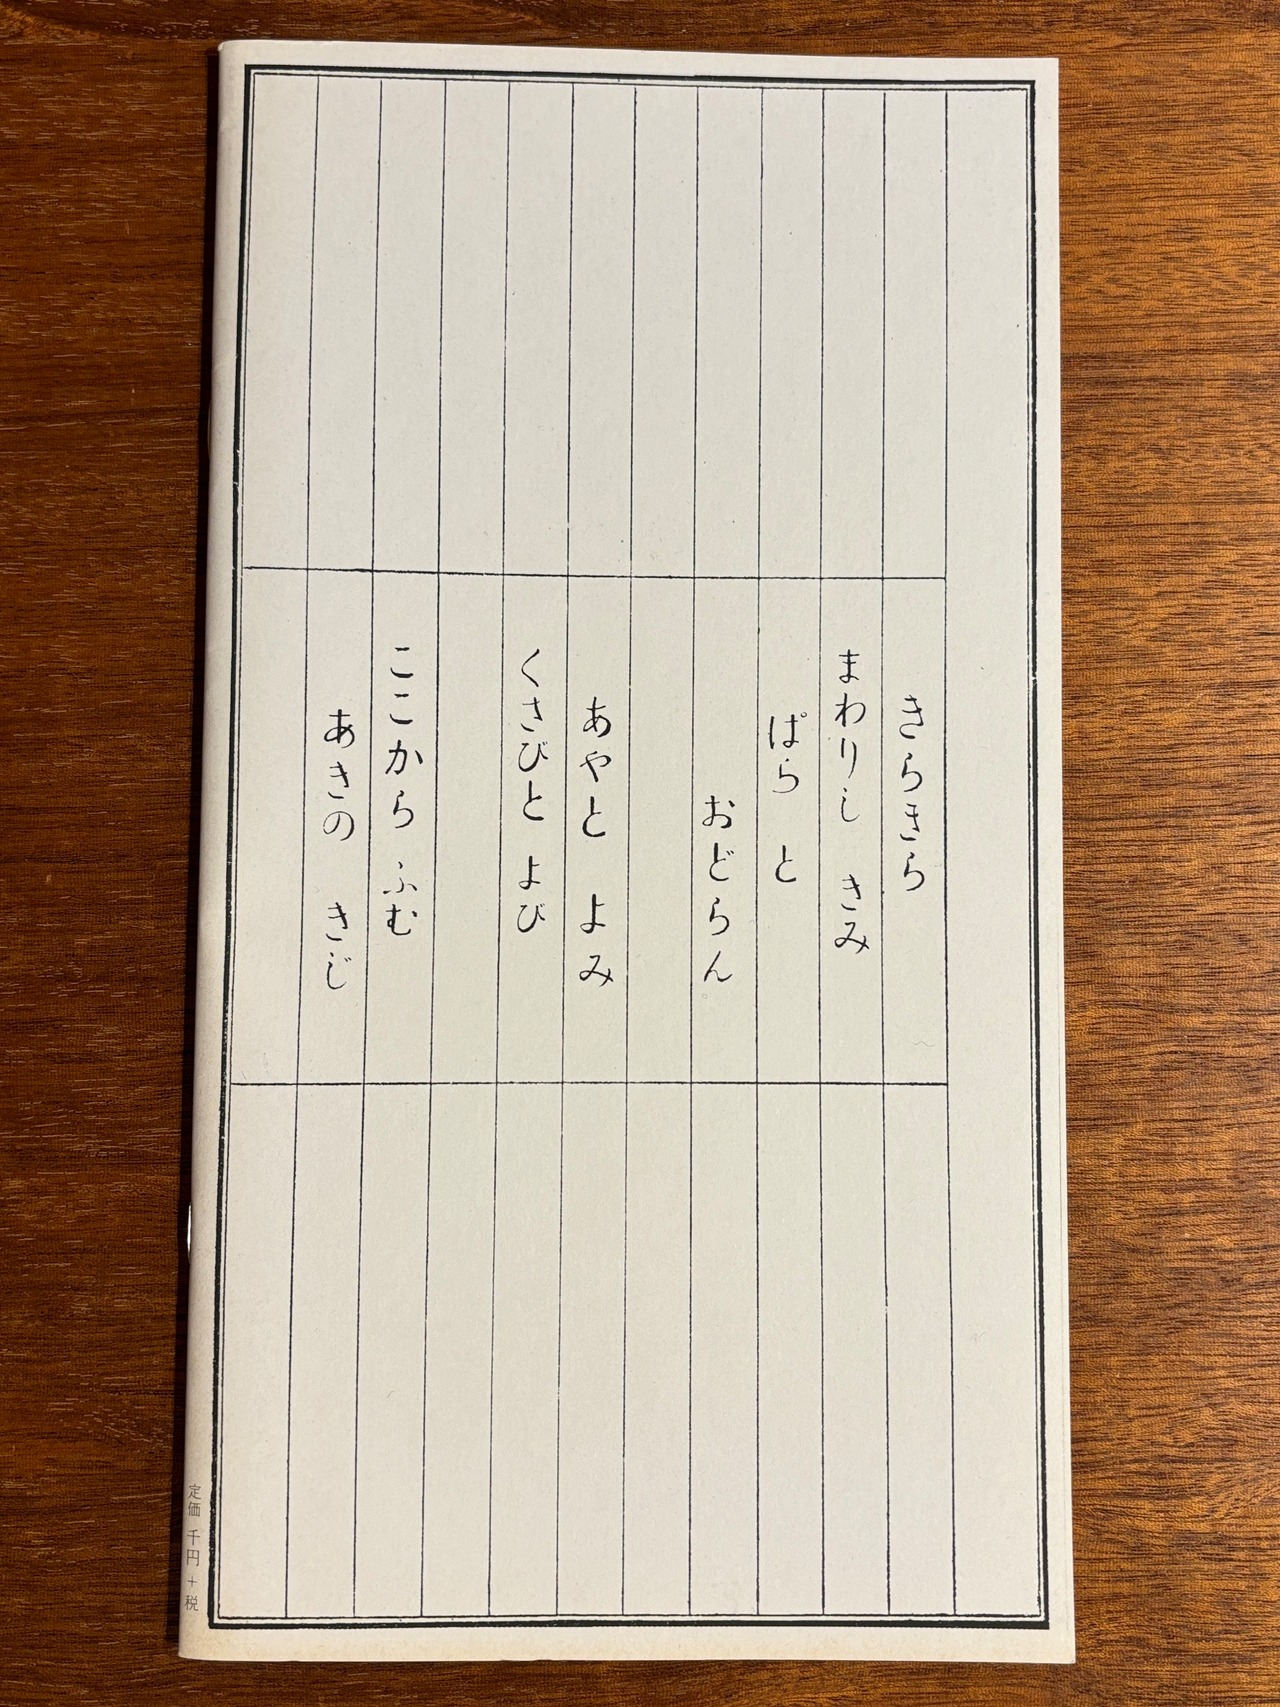 きらきら
まわりし きみ
ぱら と
おどらん
あやと よみ
くさびと よび
ここから ふむ
あきの きじ
定価 千円+税